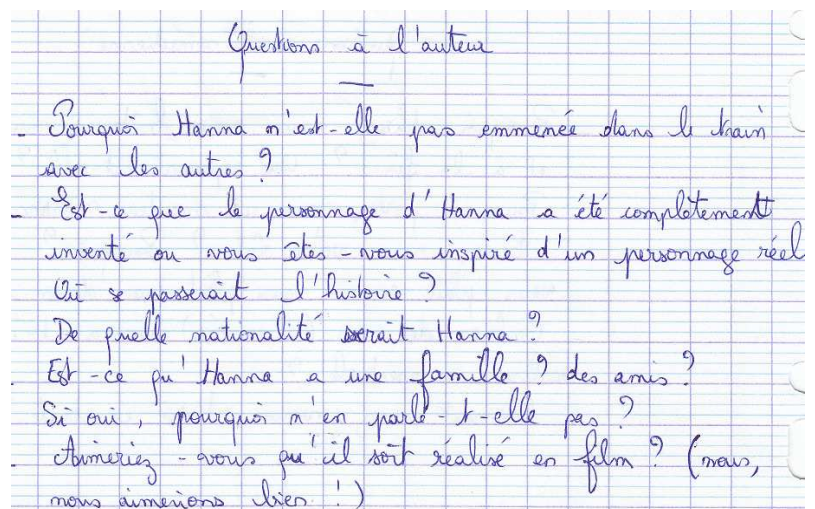 Questions à l'auteur
- Pourquoi Hanna n'est-elle pas emmenée dans le train
avec les autres ?
- Est-ce que le personnage d'Hanna a été complètement
inventé ou vous êtes-vous inspiré d'un personnage réel
Où se passerait l'histoire ?
De quelle nationalité serait Hanna ?
- Est-ce qu'Hanna a une famille ? des amis ?
Si oui, pourquoi n'en parle-t-elle pas ?
- Aimeriez-vous qu'il soit réalisé en film ? (nous,
nous aimerions bien !)